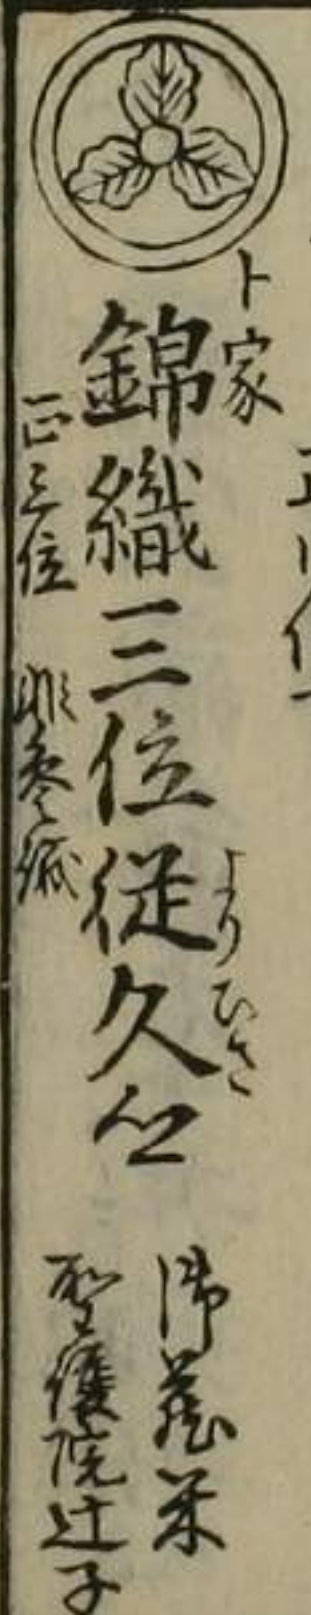 卜家
錦織三位従久公
よりひさ
正三位 非参議
御蔵米
聖護院辻子